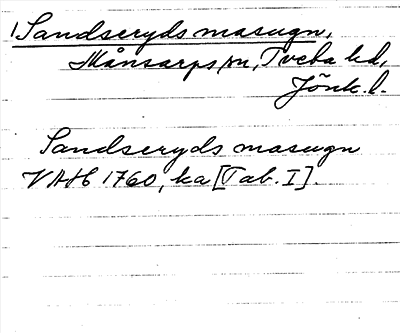 1 Sandseryds masugn,
Månsarps sn, Tveta hd,
Jönk. l.
Sandseryds masugn
VAH 1760, ka [Tab. I].